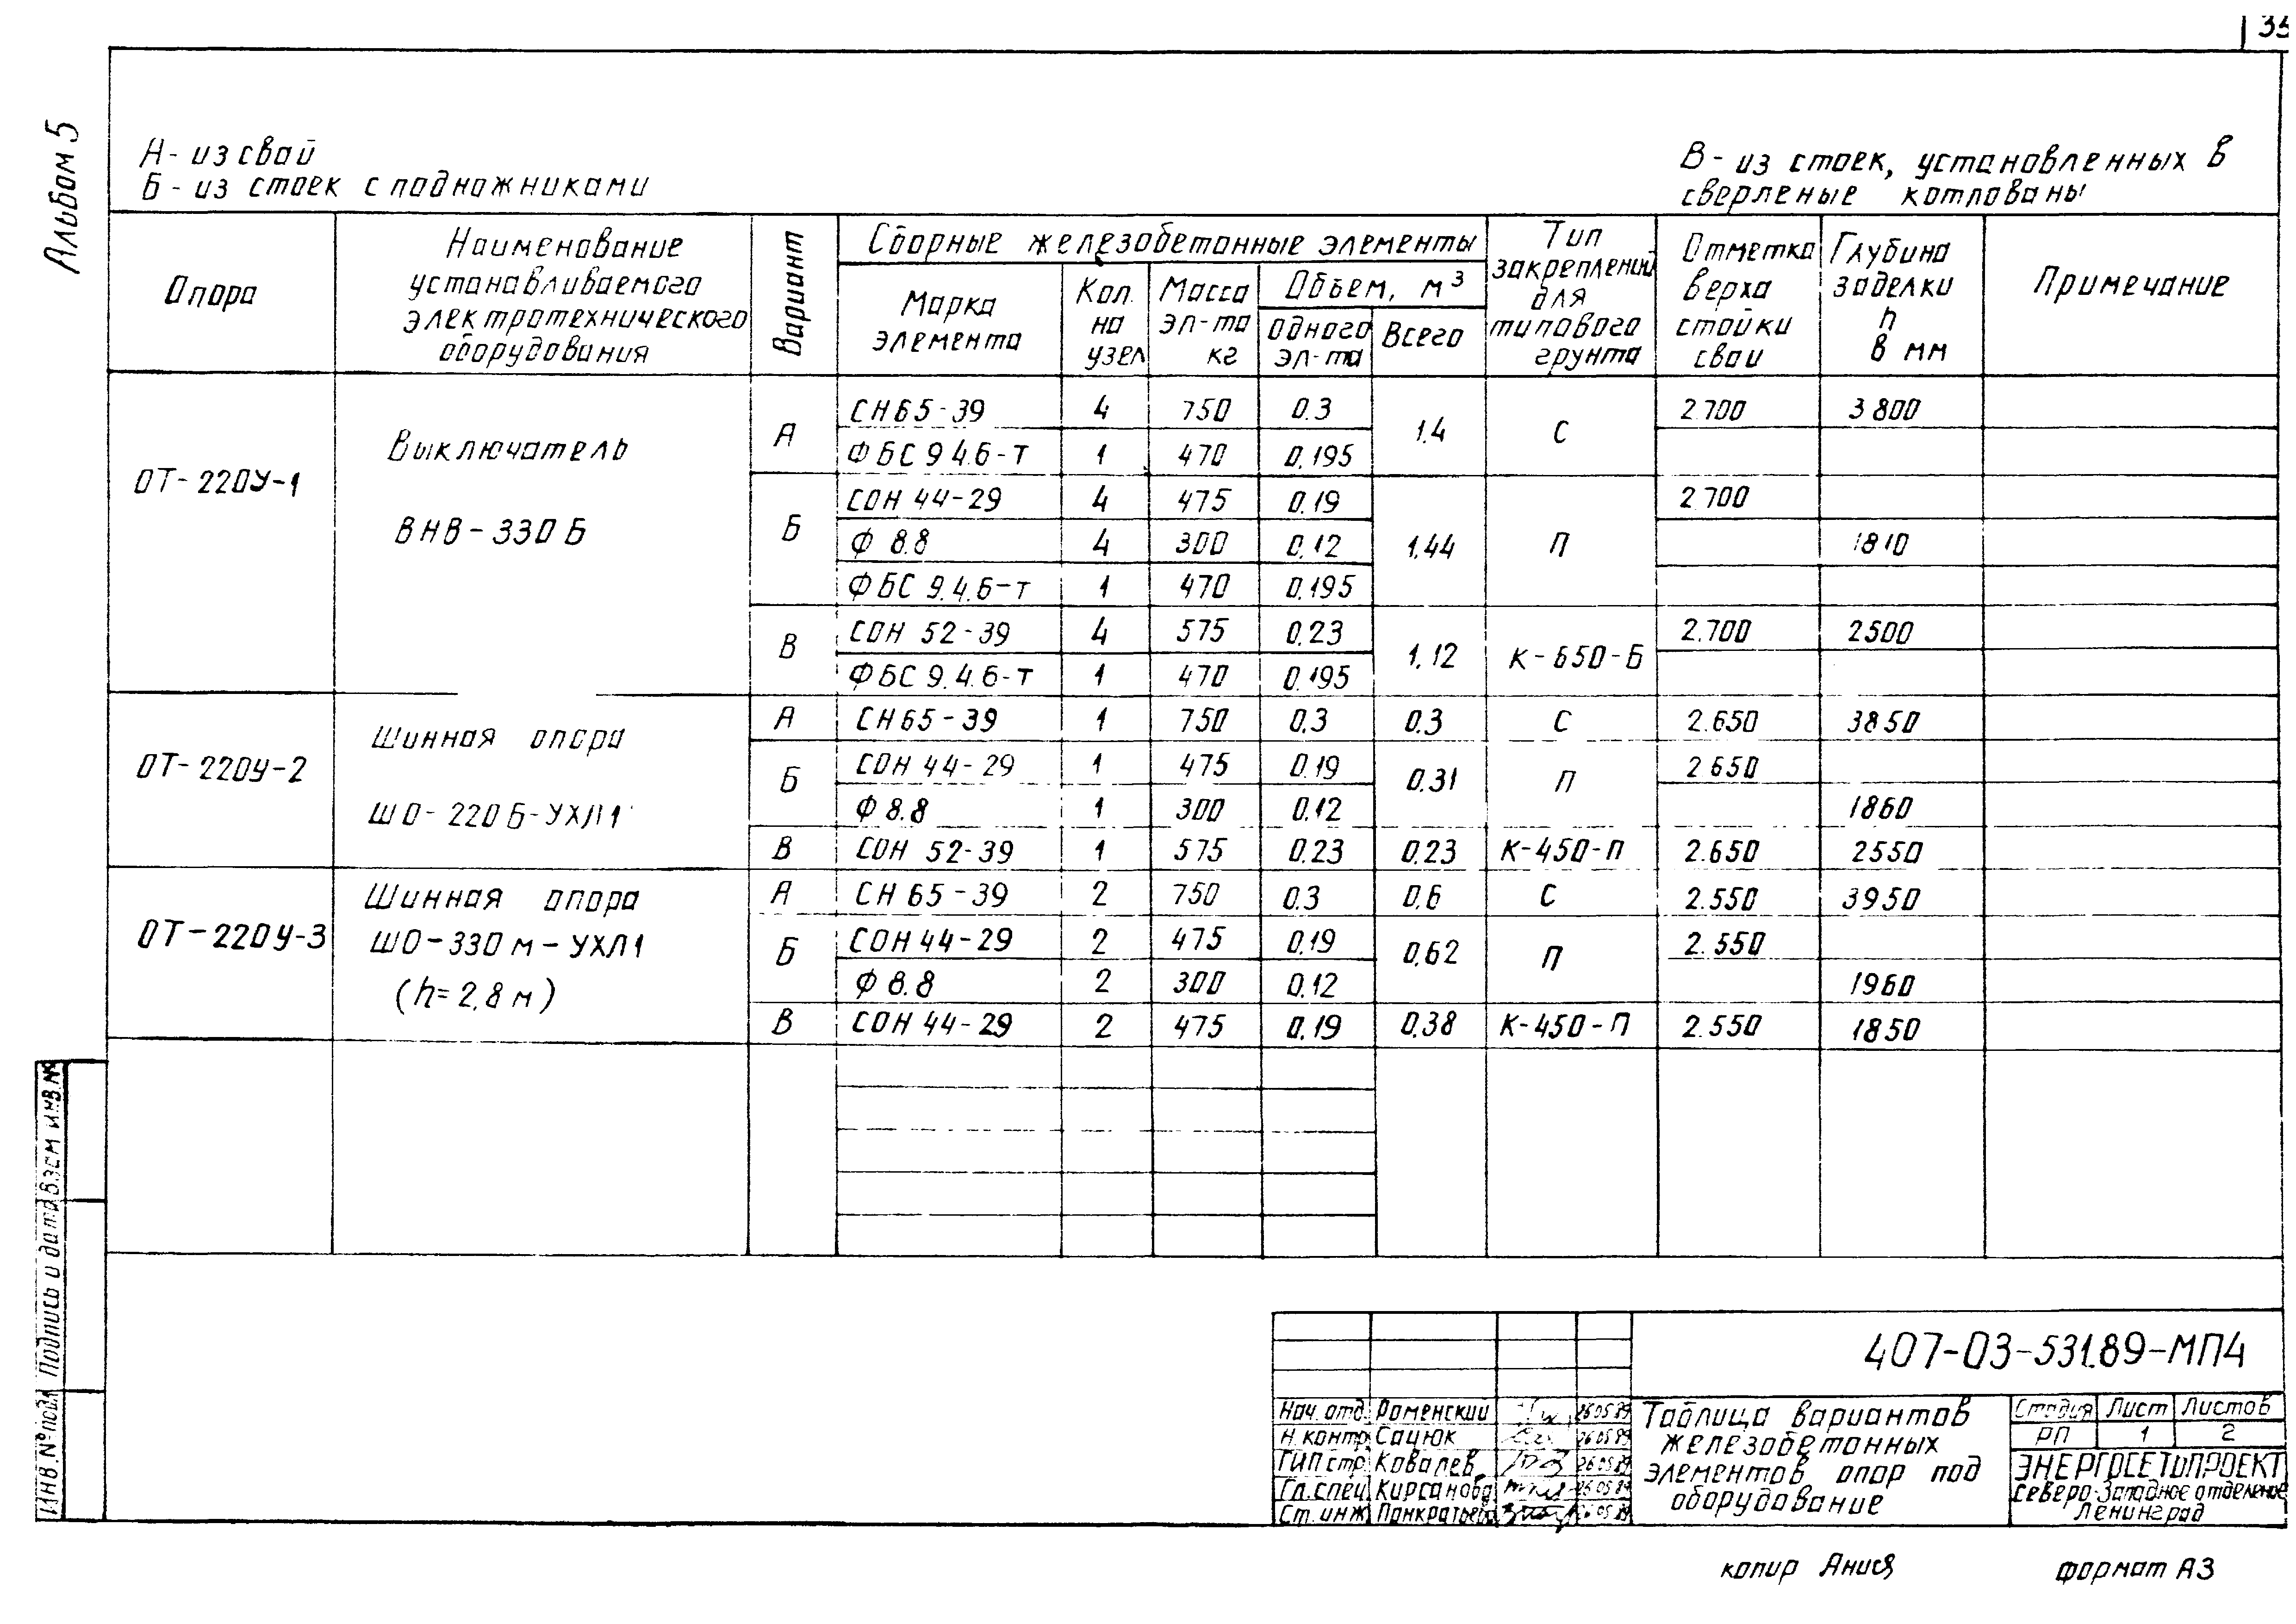 35
Альбом 5
А - из свай
Б - из стоек с подножниками
В - из стоек, установленных в
сверленые котлованы
Опора
Наименование
устанавливаемого
электротехнического
оборудования
Вариант
Сборные железобетонные элементы
Марка
элемента
Кол.
на
узел
Масса
эл-та
кг
Объем, м³
одного
эл-та
Всего
Тип
закреплений
для
типового
грунта
Отметка
верха
стойки
сваи
Глубина
заделки
h
в мм
Примечание
ОТ-220У-1
Выключатель
ВНВ-330Б
А
СН65-39 4 750 0.3 1.4 С 2.700 3800
ФБС 9.4.6-т 1 470 0.195
Б
СОН 44-29 4 475 0.19 2.700
Ф 8.8 4 300 0.12 1.44 П 1810
ФБС 9.4.6-т 1 470 0.195
В
СОН 52-39 4 575 0.23 1.12 К-650-Б 2.700 2500
ФБС 9.4.6-т 1 470 0.195
ОТ-220У-2
Шинная опора
ШО-220Б-УХЛ1
А СН65-39 1 750 0.3 0.3 С 2.650 3850
Б СОН 44-29 1 475 0.19 0.31 П 2.650
Ф 8.8 1 300 0.12 1860
В СОН 52-39 1 575 0.23 0.23 К-450-П 2.650 2550
ОТ-220У-3
Шинная опора
ШО-330м-УХЛ1
(h=2,8м)
А СН 65-39 2 750 0.3 0.6 С 2.550 3950
Б СОН 44-29 2 475 0.19 0.62 П 2.550
Ф 8.8 2 300 0.12 1960
В СОН 44-29 2 475 0.19 0.38 К-450-П 2.550 1850
Инв.№подл Подпись и дата Взам инв.№
407-03-531.89-МП4
Нач. отд. Роменский 26.05.89
Н. контр. Сацюк 26.05.89
ГИП стр. Ковалев 26.05.89
Гл. спец Кирсанова 26.05.89
Ст. инж Панкратьева 26.05.89
Таблица вариантов
железобетонных
элементов опор под
оборудование
Стадия Лист Листов
РП 1 2
ЭНЕРГОСЕТЬПРОЕКТ
Северо-Западное отделение
Ленинград
копир Анися
формат А3